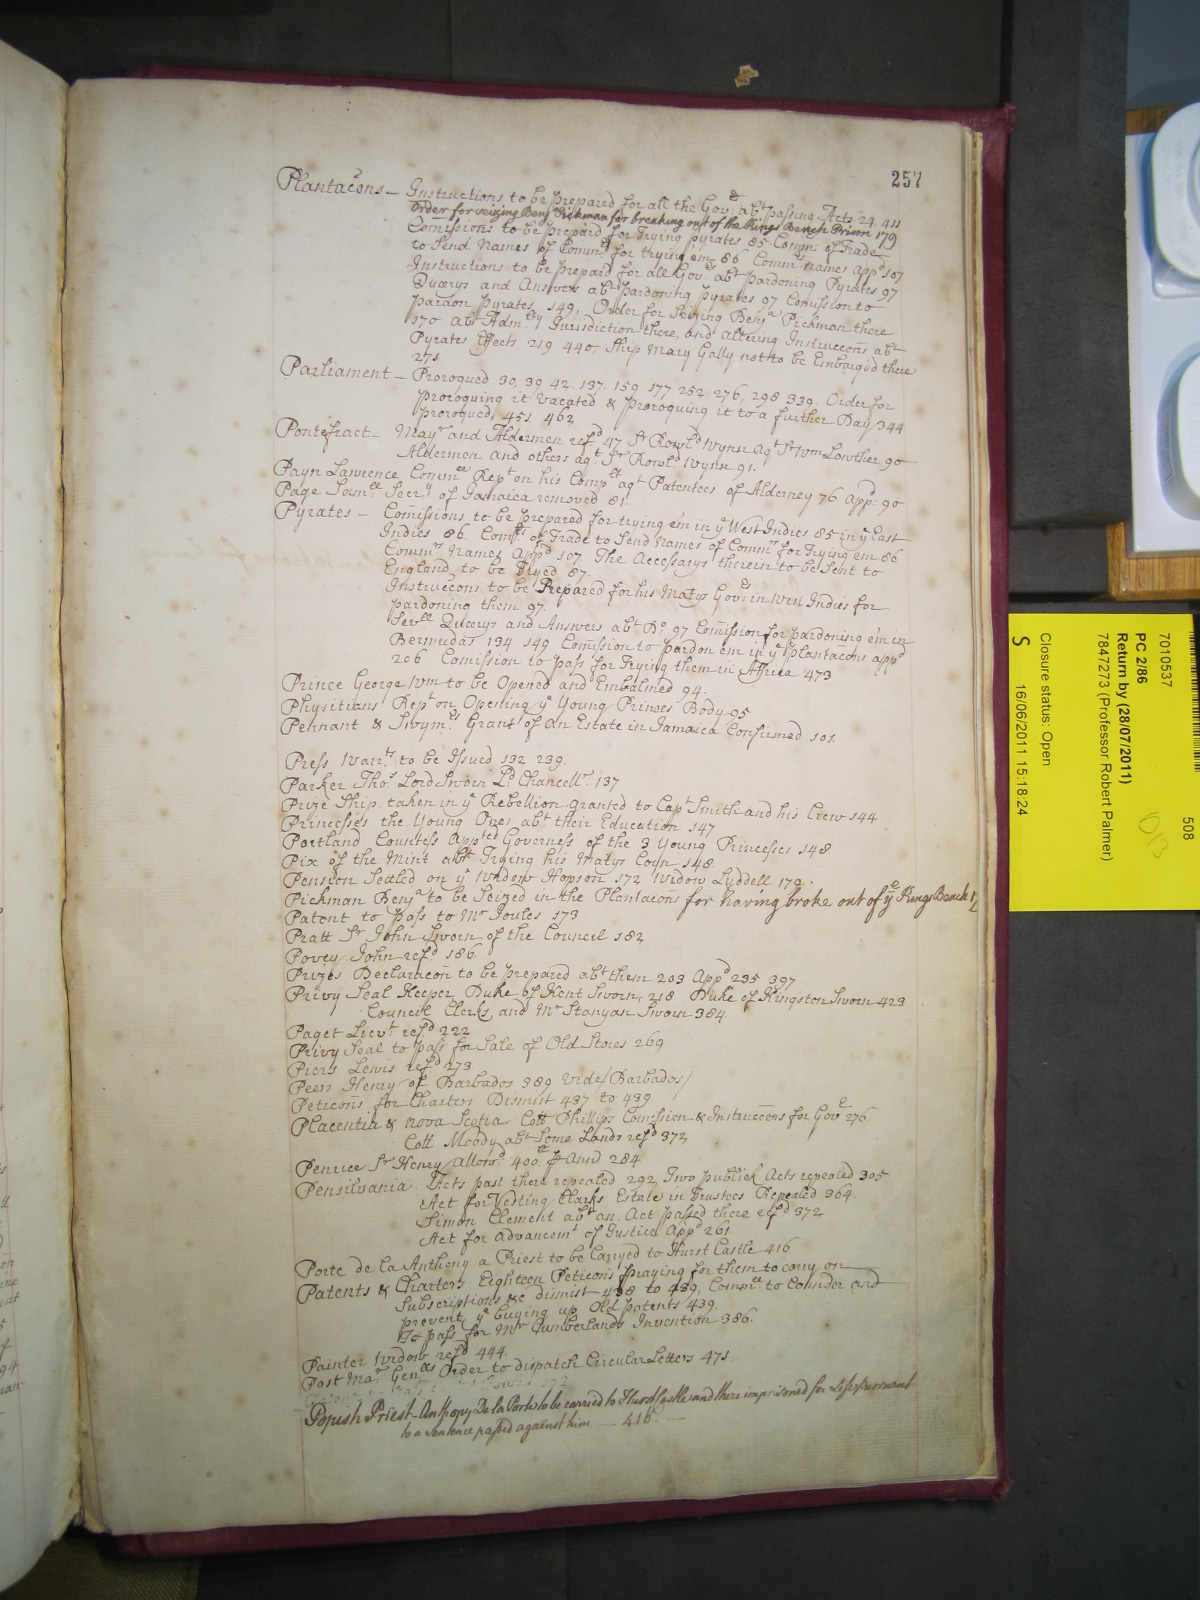 257
Plantacons – Instructions to be prepared for all the Govrs abt passing Acts 24. 411
Order for seizing Benj Pickman for breaking out of the Kings Bench Prison 179
Comissions to be prepard for Trying pyrates 85. Commrs of Trade
to Send Names of Commrs for trying em 86 Commrs names appd 107
Instructions to be prepard for all Govrs abt pardoning Pyrates 97
Quærys and Answers abt pardoning pyrates 97 Comission to
pardon pyrates, 149, Order for Seizing Benja Pickman there
170 abt Admlty Jurisdiction there, and altering Instruccons abt
Pyrates Effects 219 440, Ship Mary Gally not to be Embargod there
271
Parliament – Prorogued 30, 39, 42. 137. 159 177 252 276, 298 339. Order for
proroguing it vacated & proroguing it to a further Day 344
prorogued, 451 462
Pontefract – Mayr and Aldermen refd 47 Sr Rowld Wynn agt Sr Wm Lowther 90
Aldermen and others agt Sr Rowld Wynn 91.
Payn Lawrence Commee Rept on his Complt agt Patentees of Alderney 76 appd: 90
Page Samll Secry of Jamaica removed 81.
Pyrates – Comissions to be prepared for trying em in ye West Indies 85 in ye East
Indies 86. Commrs of Trade to Send Names of Commrs for Trying em 86
Commrs Names Appd 107 The Accessarys therein to be Sent to
England to be Tryed 87
Instruccons to be Prepared for his Matys Govrs in West Indies for
pardoning them 97.
Sevll Quærys and Answers abt Do. 97 Comission for pardoning em in
Bermudas 134 149 Comission to pardon em in ye plantacons appd
206 Comission to pass for Trying them in Africa 473
Prince George Wm to be Opened and Embalmed 94.
Physitians Rept on Opening ye Young Princes Body 95
Pennant & Grant of an Estate in Jamaica Confirmed 101.
Press Warrts to be Issued 132 239.
Parker Thos Lord Sworn Ld Chancellr 137
Prize Ship taken in ye Rebellion granted to Capt Smith and his Crew 144
Princesses the Young Ones abt their Education 147
Portland Countess Appted Governess of the 3 Young Princesses 148
Pix of the Mint abt Trying his Matys Coyn 148
Pension Settled on ye Widow Hopson 172 Widow Lyddell 172.
Pickman Benja to be Seized in the Plantacons for having broke out of ye Kings Bench
Patent to pass to Mr Joules 173
Pratt Sr John Sworn of the Council 182
Povey John refd 186
Prizes Declaracon to be prepared abt them 203 Appd 235 397
Privy Seal Keeper, Duke of Kent Sworn, 218 Duke of Kingston Sworn 423
Council Clerks, and Mr Stanyan Sworn 384.
Paget Lievt refd 222
Privy Seal to pass for Sale of Old Stores 269
Piers Lewis refd 273
Peers Henry of Barbados 389 vide/Barbados/
Peticons for Charters Dismist 437 to 439
Placentia & Nova Scotia Coll Phillips Comission & Instruccons for Govr 276
Coll Moody abt Some Lands refd 372
Penrice Sr Henry allowd 400£ p Ann 284
Pensilvania Acts past there repealed 292, Two publick Acts repealed 305
Act for Vesting Clarks Estate in Trustees Repealed 364.
Simon Clement abt an Act passed there refd 372
Act for Advancemt of Justice Appd 261
Porte de la Anthony a Priest to be Carryed to Hurst Castle 416
Patents & Charters Eighteen Peticons praying for them to carry on
Subscriptions &c dismist 438 to 439, Commee to Consider and
prevent ye buying up Old patents 439.
To pass for Mr Cumberlands Invention 386.
Painter Widow refd 444.
Post Mar Genll Order to dispatch Circular Letters 471
Popish Priest – Anthony De la Porte to be carried to Hurst Castle and there imprisoned for Life pursuant
to a Sentence passed against him — 416. —
7010537
PC 2/86
Return by (28/07/2011)
7847273 (Professor Robert Palmer)
508
Closure status: Open
S 16/06/2011 15:18:24